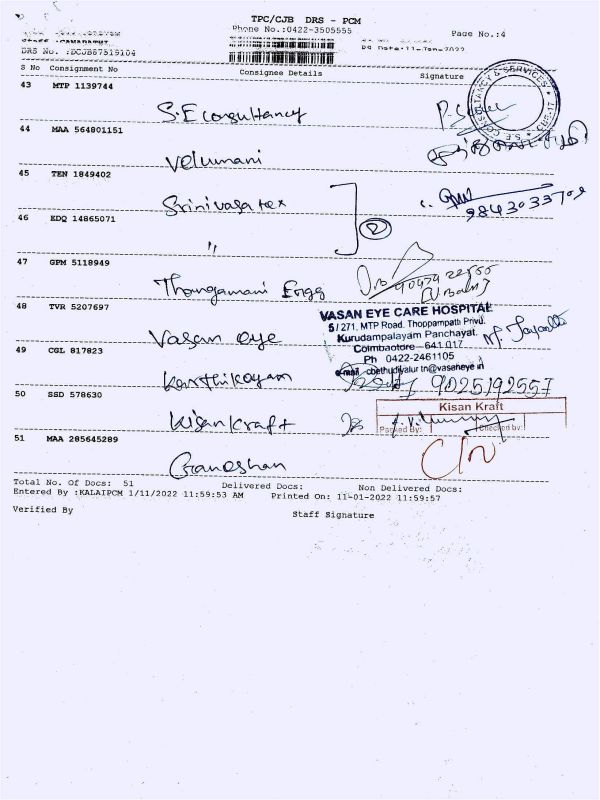 TPC/CJB DRS - PCM
Phone No.:0422-3505555
Page No.:4
DRS No. :DCJB87519104
S No Consignment No Consignee Details Signature
43 MTP 1139744
S.E consultancy
44 MAA 564801151
Velumani
45 TEN 1849402
Srinivasa tex
46 EDQ 14865071
"
2
9843033709
47 GPM 5118949
Thangamani Engg
48 TVR 5207697
Vasan eye
VASAN EYE CARE HOSPITAL
5/271, MTP Road, Thoppampatti Privu,
Kurudampalayam Panchayat,
Coimbaotore - 641 017
Ph 0422-2461105
e-mail cbethudiyalur tn@vasaneye in
49 CGL 817823
Karthikayam
9025192557
50 SSD 578630
Kisan kraft
Kisan Kraft
Packed By: Checked by:
51 MAA 285645289
Ganeshan
Total No. Of Docs: 51 Delivered Docs: Non Delivered Docs:
Entered By :KALAIPCM 1/11/2022 11:59:53 AM Printed On: 11-01-2022 11:59:57
Verified By Staff Signature